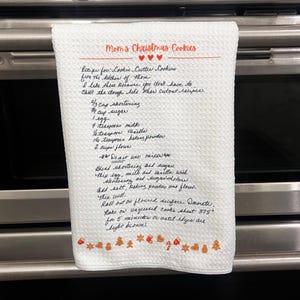 Mom's Christmas Cookies
Recipe for Cookie Cutter Cookies
from the kitchen of Mom
I like these because you don't have to
chill the dough like other cutout recipes.
cup shortening
cup sugar
1 egg
teaspoons milk
teaspoon vanilla
teaspoons baking powder
2 cups flour
Blend shortening and sugar
Add egg, milk and vanilla with
shortening and sugar
Add salt, baking powder and flour.
Mix well.
Roll out on floured surface. Decorate,
Bake on ungreased cookie sheet 375°
for 5 minutes or until edges are
light brown!